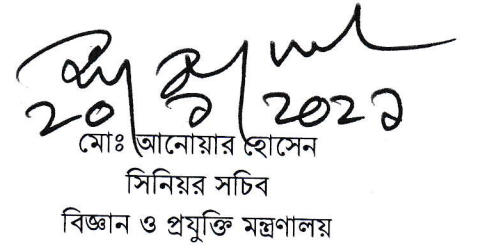 ২০/১/২০২১
মোঃ আনোয়ার হোসেন
সিনিয়র সচিব
বিজ্ঞান ও প্রযুক্তি মন্ত্রণালয়